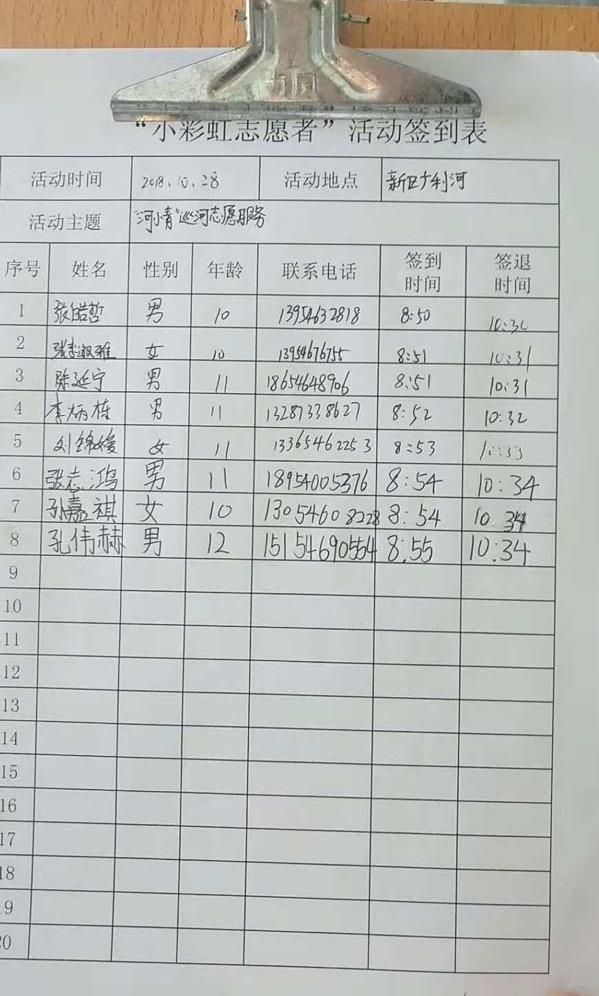 “小彩虹志愿者”活动签到表
活动时间 2018.10.28 活动地点 新广利河
活动主题 “河小青”巡河志愿服务
序号 姓名 性别 年龄 联系电话 签到时间 签退时间
1 张皓哲 男 10 13954632818 8:50 10:30
2 张 淑雅 女 10 13954676755 8:51 10:31
3 陈延宁 男 11 18654648906 8:51 10:31
4 李炳栋 男 11 13287338627 8:52 10:32
5 刘锦媛 女 11 13365462253 8:53 10:33
6 张志鸿 男 11 18954005376 8:54 10:34
7 孙嘉祺 女 10 13054608228 8:54 10:34
8 孔伟赫 男 12 15154690554 8:55 10:34
9
10
11
12
13
14
15
16
17
18
19
20